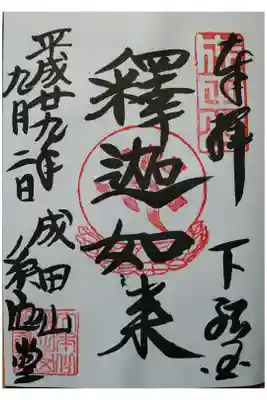 奉拝
下総国
釋迦如来
成田山
平成廿九年
九月二日